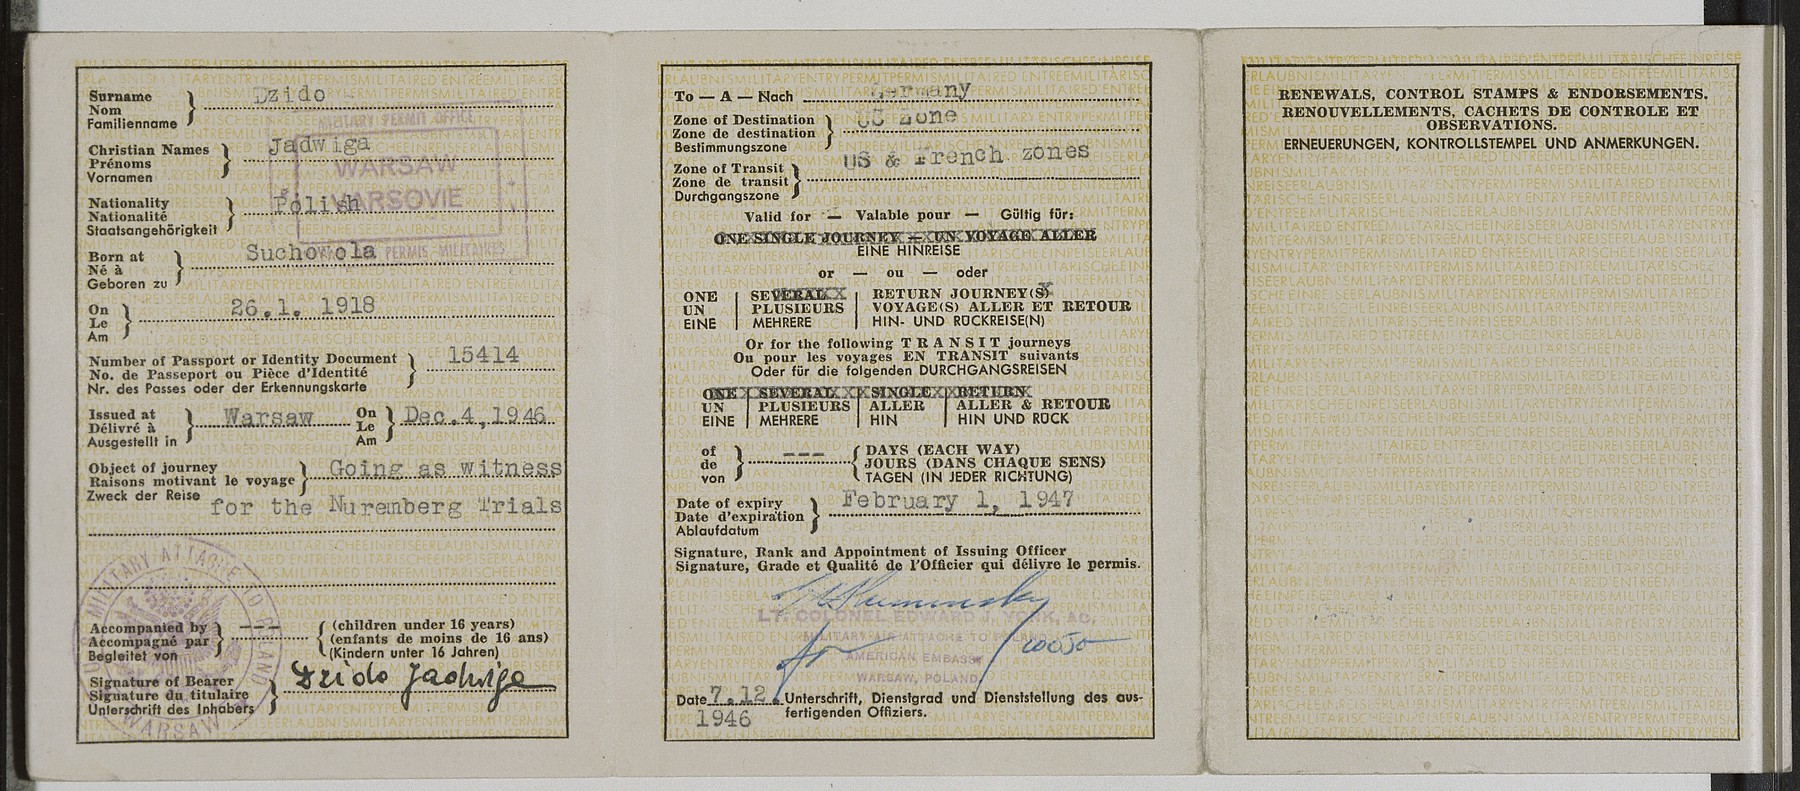 Surname
Nom
Familienname
Dzido
MILITARY PERMIT OFFICE
Christian Names
Prénoms
Vornamen
Jadwiga
WARSAW
VARSOVIE
Nationality
Nationalité
Staatsangehörigkeit
Polish
PERMIS MILITAIRES
Born at
Né à
Geboren zu
Suchowola
On
Le
Am
26.1. 1918
Number of Passport or Identity Document
No. de Passeport ou Pièce d'Identité
Nr. des Passes oder der Erkennungskarte
15414
Issued at
Délivré à
Ausgestellt in
Warsaw
On
Le
Am
Dec.4,1946
Object of journey
Raisons motivant le voyage
Zweck der Reise
Going as witness
for the Nuremberg Trials
MILITARY ATTACHE TO POLAND
WARSAW
Accompanied by
Accompagné par
Begleitet von
---
(children under 16 years)
(enfants de moins de 16 ans)
(Kindern unter 16 Jahren)
Signature of Bearer
Signature du titulaire
Unterschrift des Inhabers
Dzido Jadwiga
To — A — Nach
Germany
Zone of Destination
Zone de destination
Bestimmungszone
US Zone
Zone of Transit
Zone de transit
Durchgangszone
US & French zones
Valid for — Valable pour — Gültig für:
ONE SINGLE JOURNEY — UN VOYAGE ALLER
EINE HINREISE
or — ou — oder
ONE SEVERAL XX RETURN JOURNEY(S)
UN PLUSIEURS VOYAGE(S) ALLER ET RETOUR
EINE MEHRERE HIN- UND RÜCKREISE(N)
Or for the following TRANSIT journeys
Ou pour les voyages EN TRANSIT suivants
Oder für die folgenden DURCHGANGSREISEN
ONE SEVERAL SINGLE RETURN
UN PLUSIEURS ALLER ALLER & RETOUR
EINE MEHRERE HIN HIN UND RÜCK
of
de
von
---
DAYS (EACH WAY)
JOURS (DANS CHAQUE SENS)
TAGEN (IN JEDER RICHTUNG)
Date of expiry
Date d'expiration
Ablaufdatum
February 1, 1947
Signature, Rank and Appointment of Issuing Officer
Signature, Grade et Qualité de l'Officier qui délivre le permis.
LT. COLONEL EDWARD J. YORK, AC,
MILITARY AIR ATTACHE TO POLAND
AMERICAN EMBASSY
WARSAW, POLAND
Date 7.12.
1946
Unterschrift, Dienstgrad und Dienststellung des aus-
fertigenden Offiziers.
RENEWALS, CONTROL STAMPS & ENDORSEMENTS.
RENOUVELLEMENTS, CACHETS DE CONTROLE ET
OBSERVATIONS.
ERNEUERUNGEN, KONTROLLSTEMPEL UND ANMERKUNGEN.